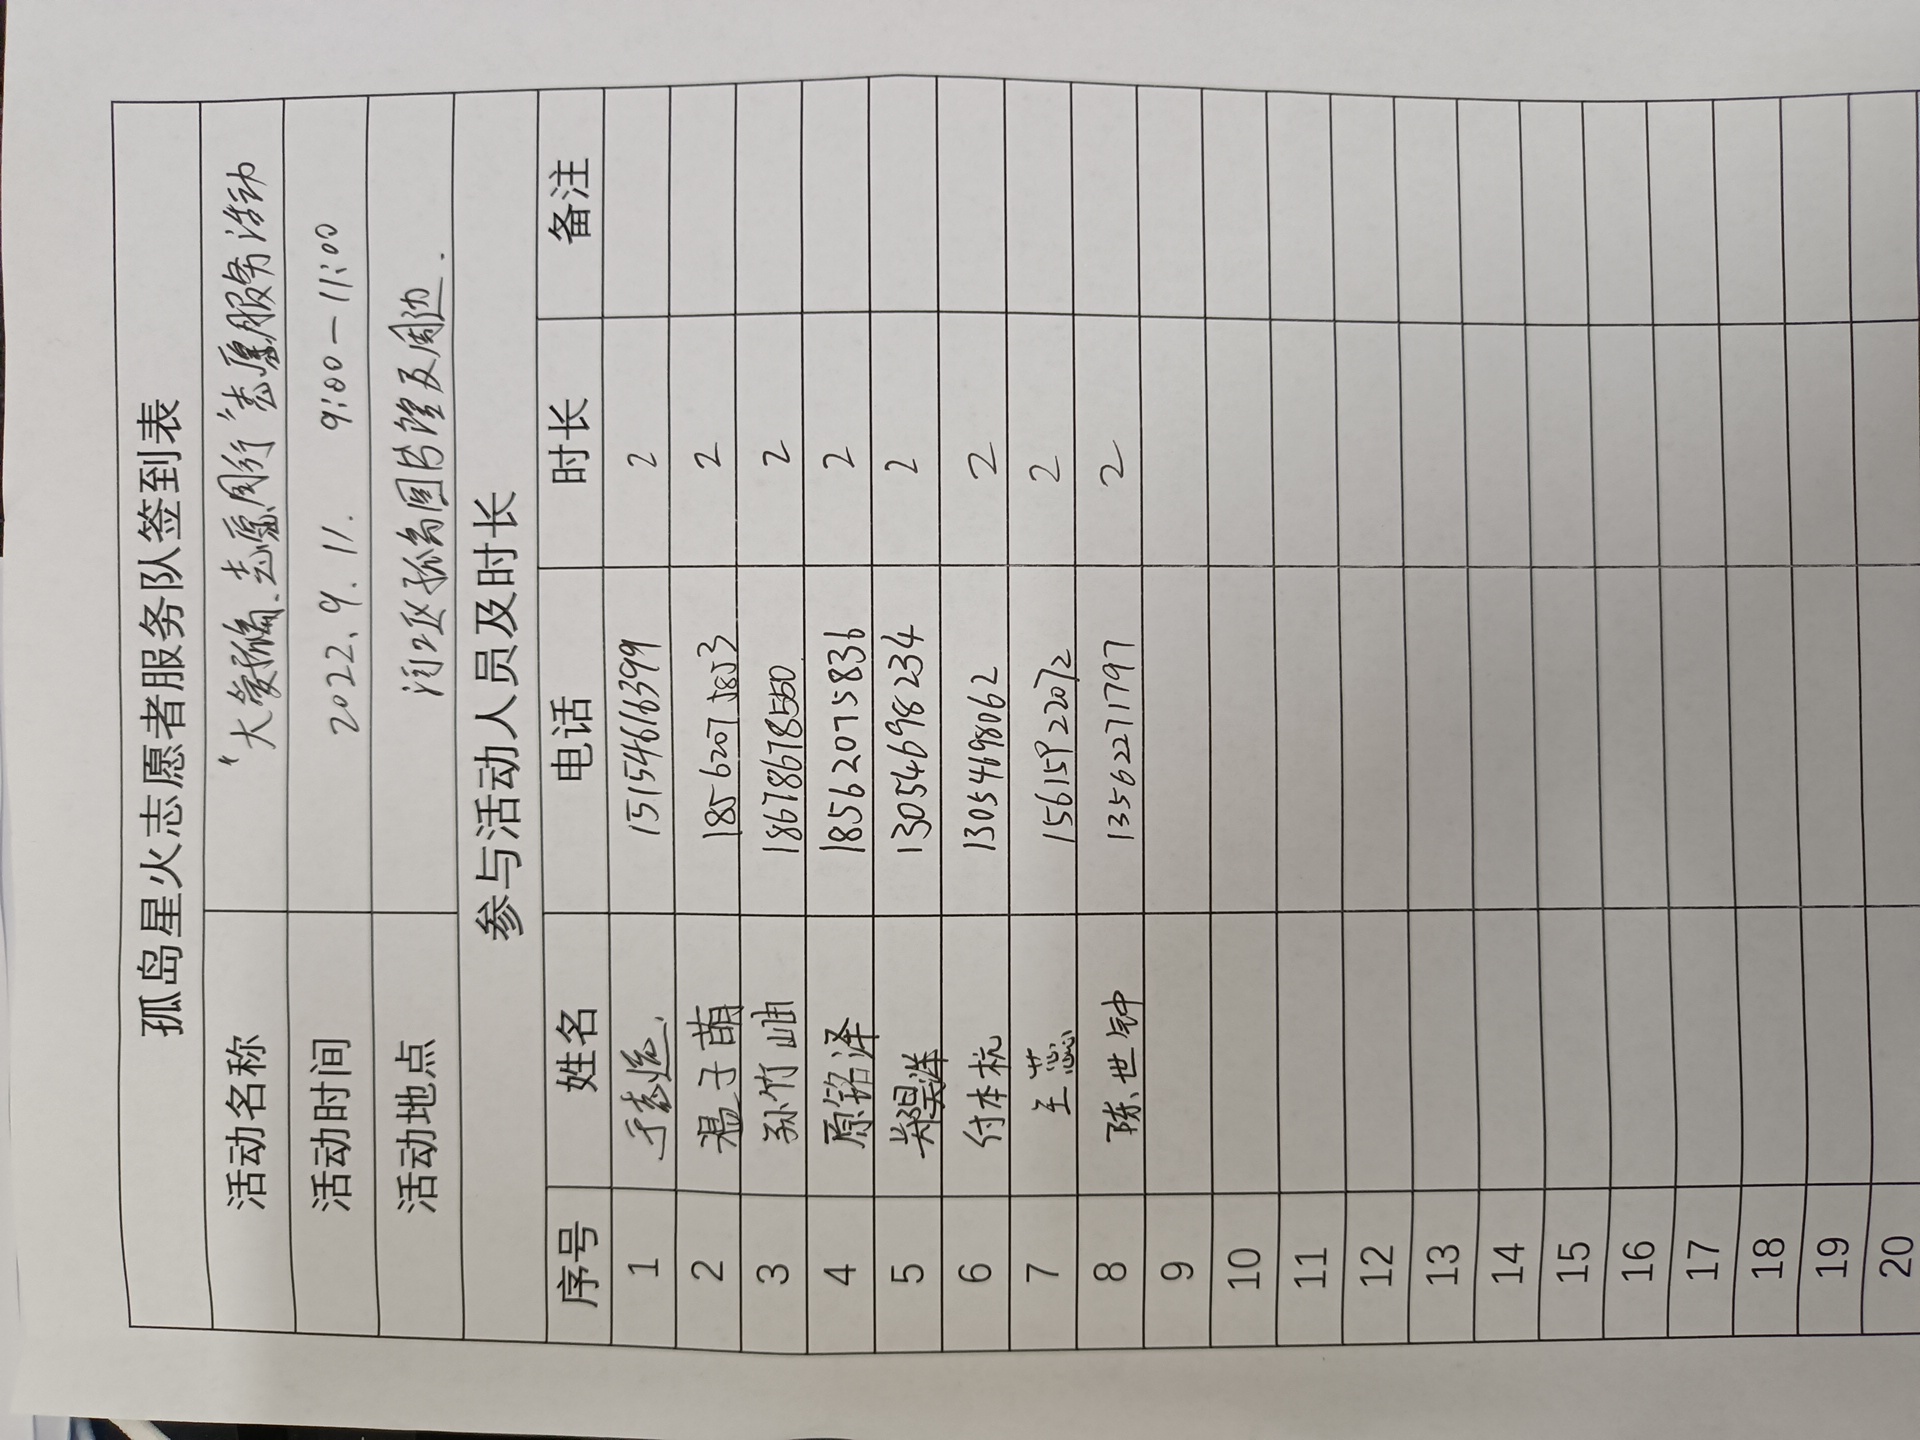 孤岛星火志愿者服务队签到表
活动名称 "大爱孤岛.志愿同行"志愿服务活动
活动时间 2022.9.11. 9:00-11:00
活动地点 河口区孤岛图书馆及周边.
参与活动人员及时长
序号 姓名 电话 时长 备注
1 15154616399 2
2 温子萌 18562075853 2
3 孙竹岫 18678678550 2
4 原铭泽 18562075836 2
5 郑昊洋 13054698234 2
6 付本杭 13054698062 2
7 王蕊 15615922072 2
8 陈世钟 13562271797 2
9
10
11
12
13
14
15
16
17
18
19
20